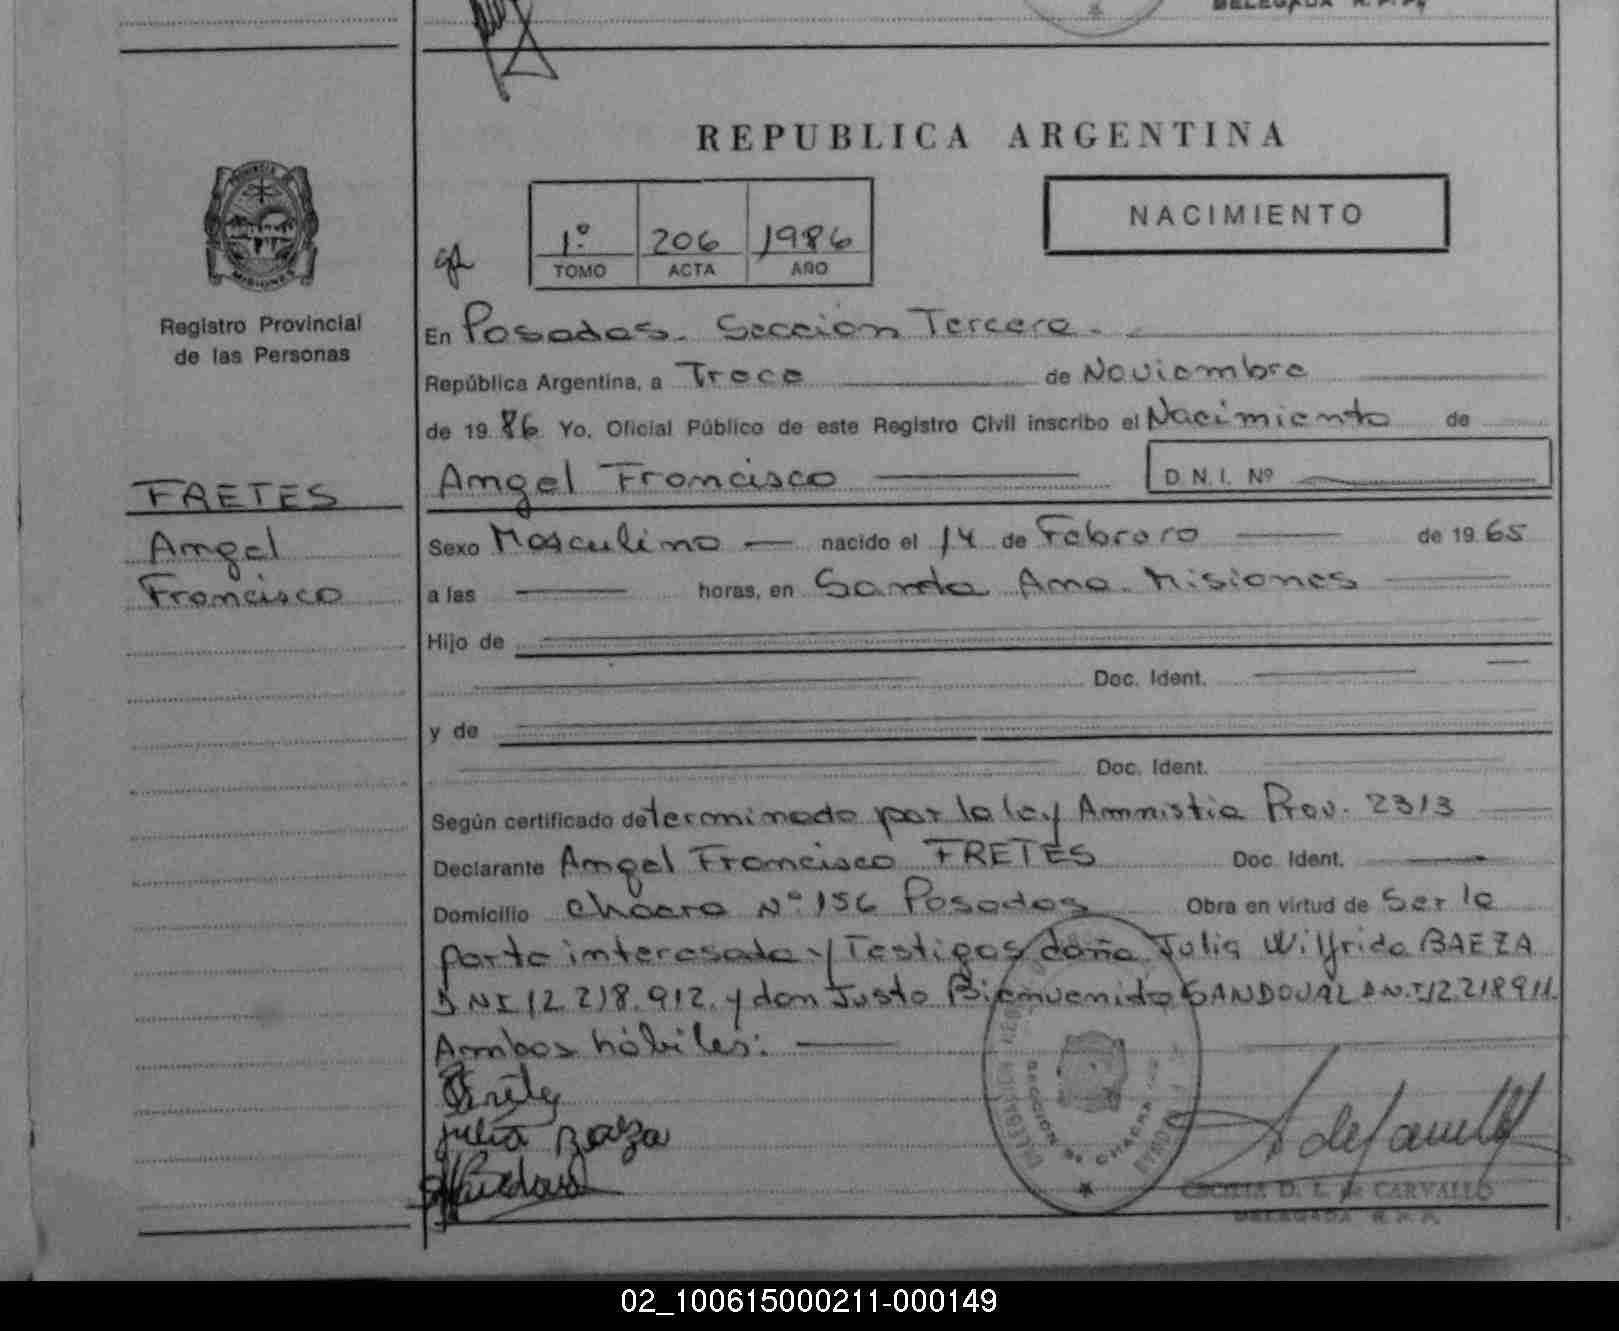 DELEGADA R.P.P.
REPUBLICA ARGENTINA
PROVINCIA
MISIONES
Registro Provincial
de las Personas
1º 206 1986
TOMO ACTA AÑO
NACIMIENTO
En Posadas. Sección Tercera.
República Argentina, a Trece de Noviembre
de 1986 Yo, Oficial Público de este Registro Civil inscribo el Nacimiento de
Angel Francisco D.N.I. Nº
FRETES
Angel
Francisco
Sexo Masculino nacido el 14 de Febrero de 1965
a las horas, en Santa Ana. Misiones
Hijo de
Doc. Ident.
y de
Doc. Ident.
Según certificado determinado por la ley Amnistia Prov. 2313
Declarante Angel Francisco FRETES Doc. Ident.
Domicilio Chacra Nº 156 Posadas Obra en virtud de Ser la
parte interesada y Testigos doña Julia Wilfrida BAEZA
DNI 12.218.912. y don Justo Bienvenido SANDOVAL DN.I12.218911.
Ambos hábiles:
Julia Baeza
SECCION 3ª CHACRA
CECILIA D. L. de CARVALLO
DELEGADA R.P.P.
02_100615000211-000149